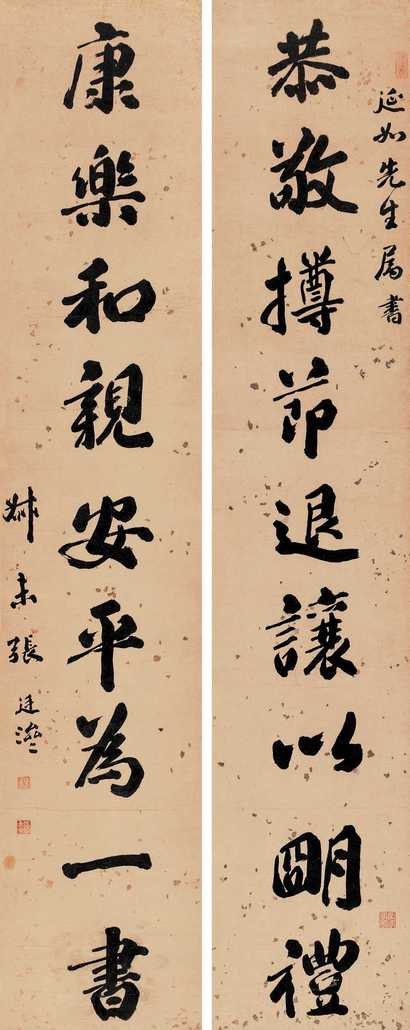 延如先生属書
恭敬撙節退讓以明禮
康樂和親安平為一書
尗未張廷濟